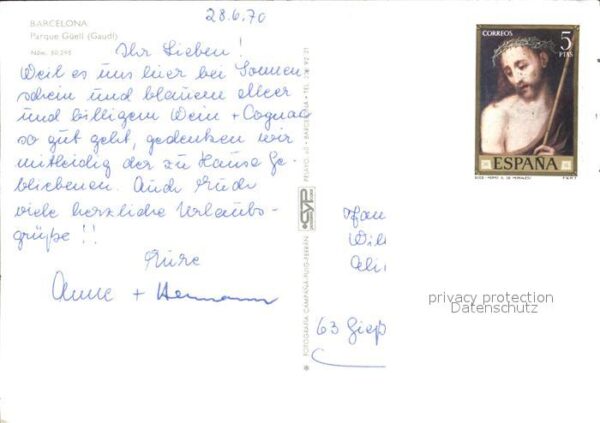 28.6.70
BARCELONA
Parque Güell (Gaudí)
Núm. 80.295
Ihr Lieben!
Weil es uns hier bei Sonnen
schein und blauem Meer
und billigem Wein + Cognac
so gut geht, gedenken wir
mitleidig der zu Hause Ge
bliebenen. Auch Euch
viele herzliche Urlaubs-
grüße!!
Eure
Anne + Hermann
CORREOS 5
PTAS
ESPAÑA
ECCE-HOMO (L. DE MORALES) F.N.M.T.
FOTOGRAFIA CAMPAÑA-PUIG-FERRAN
CYP
PELAYO, 60 - BARCELONA - TEL.
63 Gieß
privacy protection
Datenschutz